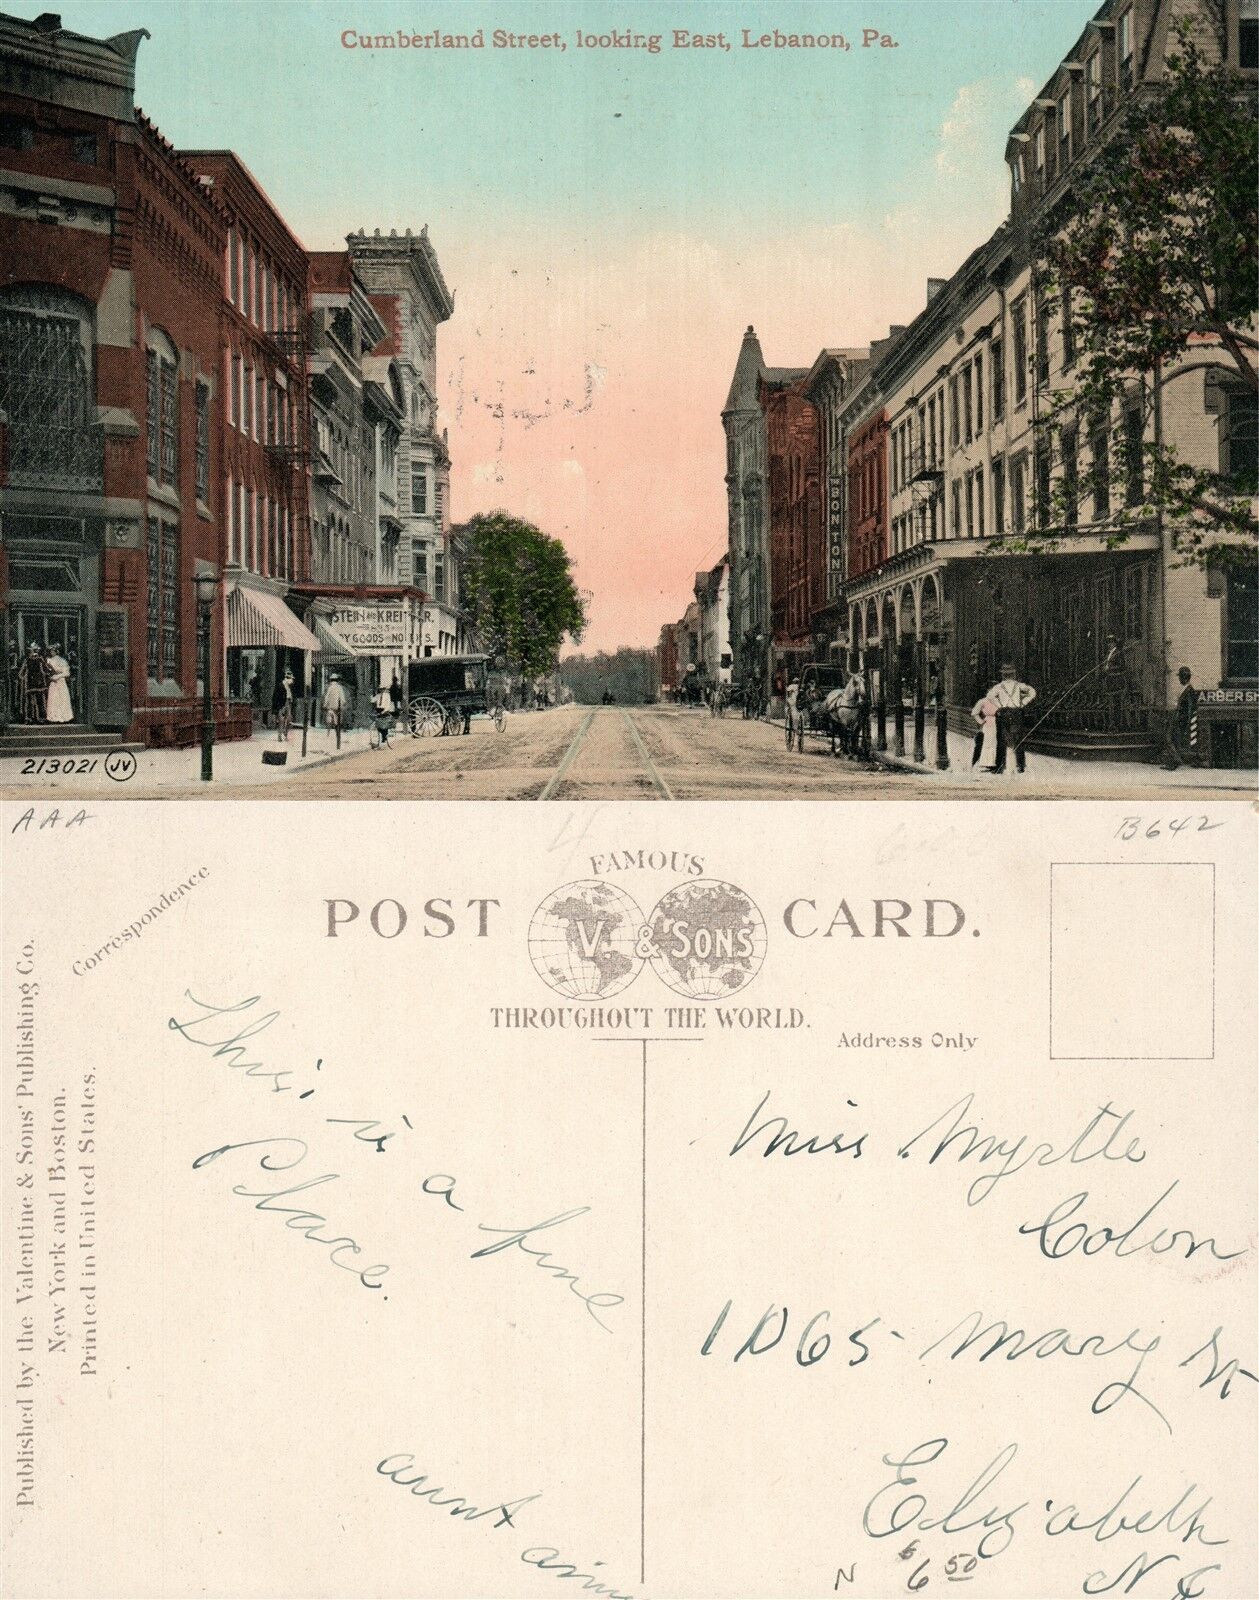 Cumberland Street, looking East, Lebanon, Pa.
THE BON TON
213021 JV
AAA
B642
Correspondence
FAMOUS
POST CARD.
V. & SONS
THROUGHOUT THE WORLD.
Address Only
Published by the Valentine & Sons' Publishing Co.
New York and Boston.
Printed in United States.
This is a fine
Place.
aunt
Miss Myrtle
Colon
1065 Mary St
Elizabeth
N $6 50